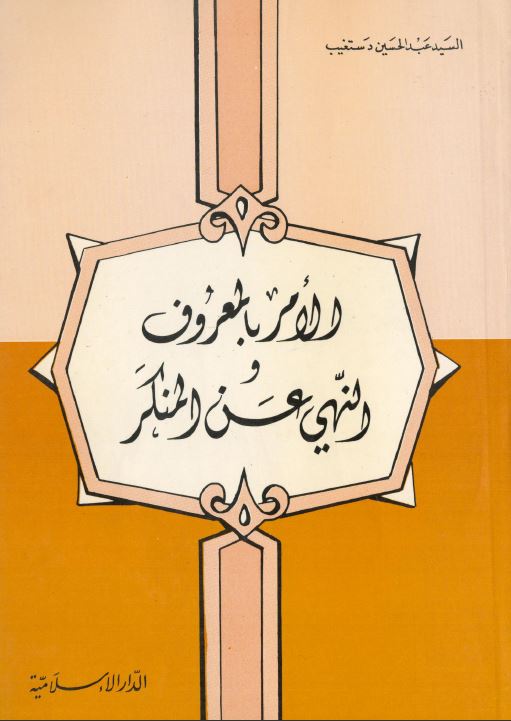 السيد عبد الحسين دستغيب
الأمر بالمعروف
و
النهي عن المنكر
الدار الإسلامية